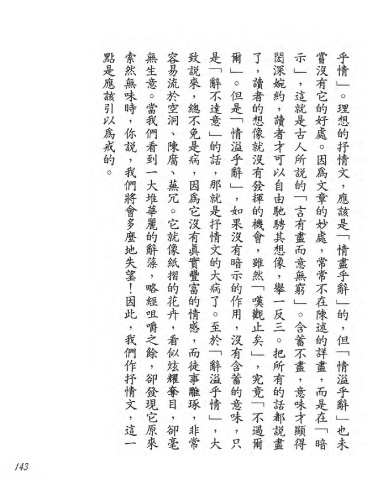 乎情」。理想的抒情文，應該是「情盡乎辭」的，但「情溢乎辭」也未
嘗沒有它的好處。因為文章的妙處，常常不在陳述的詳盡，而是在「暗
示」，這就是古人所說的「言有盡而意無窮」。含蓄不盡，意味才顯得
閎深婉約，讀者才可以自由馳騁其想像，舉一反三。把所有的話都說盡
了，讀者的想像就沒有發揮的機會，雖然「嘆觀止矣」，究竟「不過爾
爾」。但是「情溢乎辭」，如果沒有暗示的作用，沒有含蓄的意味，只
是「辭不達意」的話，那就是抒情文的大病了。至於「辭溢乎情」，大
致說來，總不免是病，因為它沒有真實豐富的情感，而徒事雕琢，非常
容易流於空洞、陳腐、蕪冗。它就像紙摺的花卉，看似炫耀奪目，卻毫
無生意。當我們看到一大堆華麗的辭藻，略經咀嚼之餘，卻發現它原來
索然無味時，你說，我們將會多麼地失望！因此，我們作抒情文，這一
點是應該引以為戒的。
143